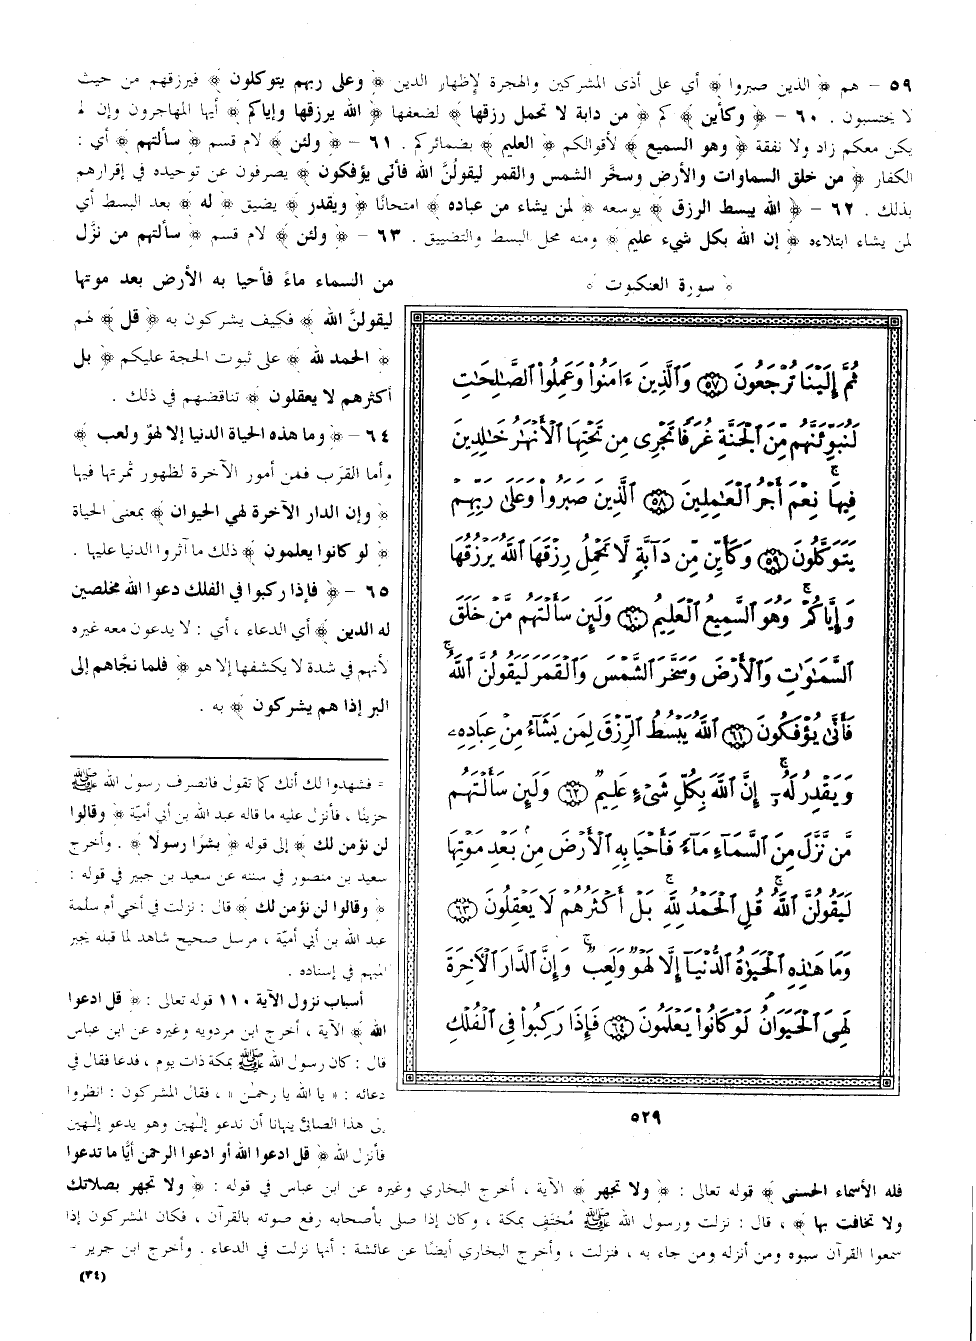 ٥٩ – هم ﴿ الذين صبروا ﴾ أي على أذى المشركين والهجرة لإظهار الدين ﴿ وعلى ربهم يتوكلون ﴾ فيرزقهم من حيث
لا يحتسبون . ٦٠ – ﴿ وكأين ﴾ كم ﴿ من دابة لا تحمل رزقها ﴾ لضعفها ﴿ الله يرزقها وإياكم ﴾ أيها المهاجرون وإن لم
يكن معكم زاد ولا نفقة ﴿ وهو السميع ﴾ لأقوالكم ﴿ العليم ﴾ بضمائركم . ٦١ – ﴿ ولئن ﴾ لام قسم ﴿ سألتهم ﴾ أي :
الكفار ﴿ من خلق السماوات والأرض وسخَّر الشمس والقمر ليقولنَّ الله فأنى يؤفكون ﴾ يصرفون عن توحيده في إقرارهم
بذلك . ٦٢ – ﴿ الله يبسط الرزق ﴾ يوسعه ﴿ لمن يشاء من عباده ﴾ امتحانًا ﴿ ويقدر ﴾ يضيق ﴿ له ﴾ بعد البسط أي
لمن يشاء ابتلاءه ﴿ إن الله بكل شيء عليم ﴾ ومنه محل البسط والتضييق . ٦٣ – ﴿ ولئن ﴾ لام قسم ﴿ سألتهم من نزَّل
من السماء ماءً فأحيا به الأرض بعد موتها
ليقولنَّ الله ﴾ فكيف يشركون به ﴿ قل ﴾ لهم
﴿ الحمد لله ﴾ على ثبوت الحجة عليكم ﴿ بل
أكثرهم لا يعقلون ﴾ تناقضهم في ذلك .
٦٤ – ﴿ وما هذه الحياة الدنيا إلا لهوٌ ولعب ﴾
وأما القرَب فمن أمور الآخرة لظهور ثمرتها فيها
﴿ وإن الدار الآخرة لهي الحيوان ﴾ بمعنى الحياة
﴿ لو كانوا يعلمون ﴾ ذلك ما آثروا الدنيا عليها .
٦٥ – ﴿ فإذا ركبوا في الفلك دعوا الله مخلصين
له الدين ﴾ أي الدعاء ، أي : لا يدعون معه غيره
لأنهم في شدة لا يكشفها إلا هو ﴿ فلما نجَّاهم إلى
البر إذا هم يشركون ﴾ به .
﴿ سورة العنكبوت ﴾
ثُمَّ إِلَيْنَا تُرْجَعُونَ ٥٧ وَالَّذِينَ ءَامَنُوا وَعَمِلُوا الصَّالِحَاتِ
لَنُبَوِّئَنَّهُم مِّنَ الْجَنَّةِ غُرَفًا تَجْرِى مِن تَحْتِهَا الْأَنْهَٰرُ خَٰلِدِينَ
فِيهَا ۚ نِعْمَ أَجْرُ الْعَٰمِلِينَ ٥٨ الَّذِينَ صَبَرُوا وَعَلَىٰ رَبِّهِمْ
يَتَوَكَّلُونَ ٥٩ وَكَأَيِّن مِّن دَآبَّةٍ لَّا تَحْمِلُ رِزْقَهَا اللَّهُ يَرْزُقُهَا
وَإِيَّاكُمْ ۚ وَهُوَ السَّمِيعُ الْعَلِيمُ ٦٠ وَلَئِن سَأَلْتَهُم مَّنْ خَلَقَ
السَّمَٰوَٰتِ وَالْأَرْضَ وَسَخَّرَ الشَّمْسَ وَالْقَمَرَ لَيَقُولُنَّ اللَّهُ ۖ
فَأَنَّىٰ يُؤْفَكُونَ ٦١ اللَّهُ يَبْسُطُ الرِّزْقَ لِمَن يَشَآءُ مِنْ عِبَادِهِۦ
وَيَقْدِرُ لَهُۥٓ ۚ إِنَّ اللَّهَ بِكُلِّ شَىْءٍ عَلِيمٌ ٦٢ وَلَئِن سَأَلْتَهُم
مَّن نَّزَّلَ مِنَ السَّمَآءِ مَآءً فَأَحْيَا بِهِ الْأَرْضَ مِن بَعْدِ مَوْتِهَا
لَيَقُولُنَّ اللَّهُ ۚ قُلِ الْحَمْدُ لِلَّهِ ۚ بَلْ أَكْثَرُهُمْ لَا يَعْقِلُونَ ٦٣
وَمَا هَٰذِهِ الْحَيَوٰةُ الدُّنْيَآ إِلَّا لَهْوٌ وَلَعِبٌ ۚ وَإِنَّ الدَّارَ الْآخِرَةَ
لَهِىَ الْحَيَوَانُ ۚ لَوْ كَانُوا يَعْلَمُونَ ٦٤ فَإِذَا رَكِبُوا فِى الْفُلْكِ
٥٢٩
= فشهدوا لك أنك كما تقول فانصرف رسول الله ﷺ
حزينًا ، فأنزل عليه ما قاله عبد الله بن أبي أميّة ﴿ وقالوا
لن نؤمن لك ﴾ إلى قوله ﴿ بشرًا رسولًا ﴾ . وأخرج
سعيد بن منصور في سننه عن سعيد بن جبير في قوله :
﴿ وقالوا لن نؤمن لك ﴾ قال : نزلت في أخي أم سلمة
عبد الله بن أبي أميّة ، مرسل صحيح شاهد لما قبله يجبر
المبهم في إسناده .
أسباب نزول الآية ١١٠ قوله تعالى : ﴿ قل ادعوا
الله ﴾ الآية ، أخرج ابن مردويه وغيره عن ابن عباس
قال : كان رسول الله ﷺ بمكة ذات يوم ، فدعا فقال في
دعائه : « يا الله يا رحمٰن » ، فقال المشركون : انظروا
إلى هذا الصابئ ينهانا أن ندعو إلٰهين وهو يدعو إلٰهين
فأنزل الله ﴿ قل ادعوا الله أو ادعوا الرحمن أيًّا ما تدعوا
فله الأسماء الحسنى ﴾ قوله تعالى : ﴿ ولا تجهر ﴾ الآية ، أخرج البخاري وغيره عن ابن عباس في قوله : ﴿ ولا تجهر بصلاتك
ولا تخافت بها ﴾ ، قال : نزلت ورسول الله ﷺ مُختَفٍ بمكة ، وكان إذا صلى بأصحابه رفع صوته بالقرآن ، فكان المشركون إذا
سمعوا القرآن سبوه ومن أنزله ومن جاء به ، فنزلت ، وأخرج البخاري أيضًا عن عائشة : أنها نزلت في الدعاء . وأخرج ابن جرير =
(٣٤)